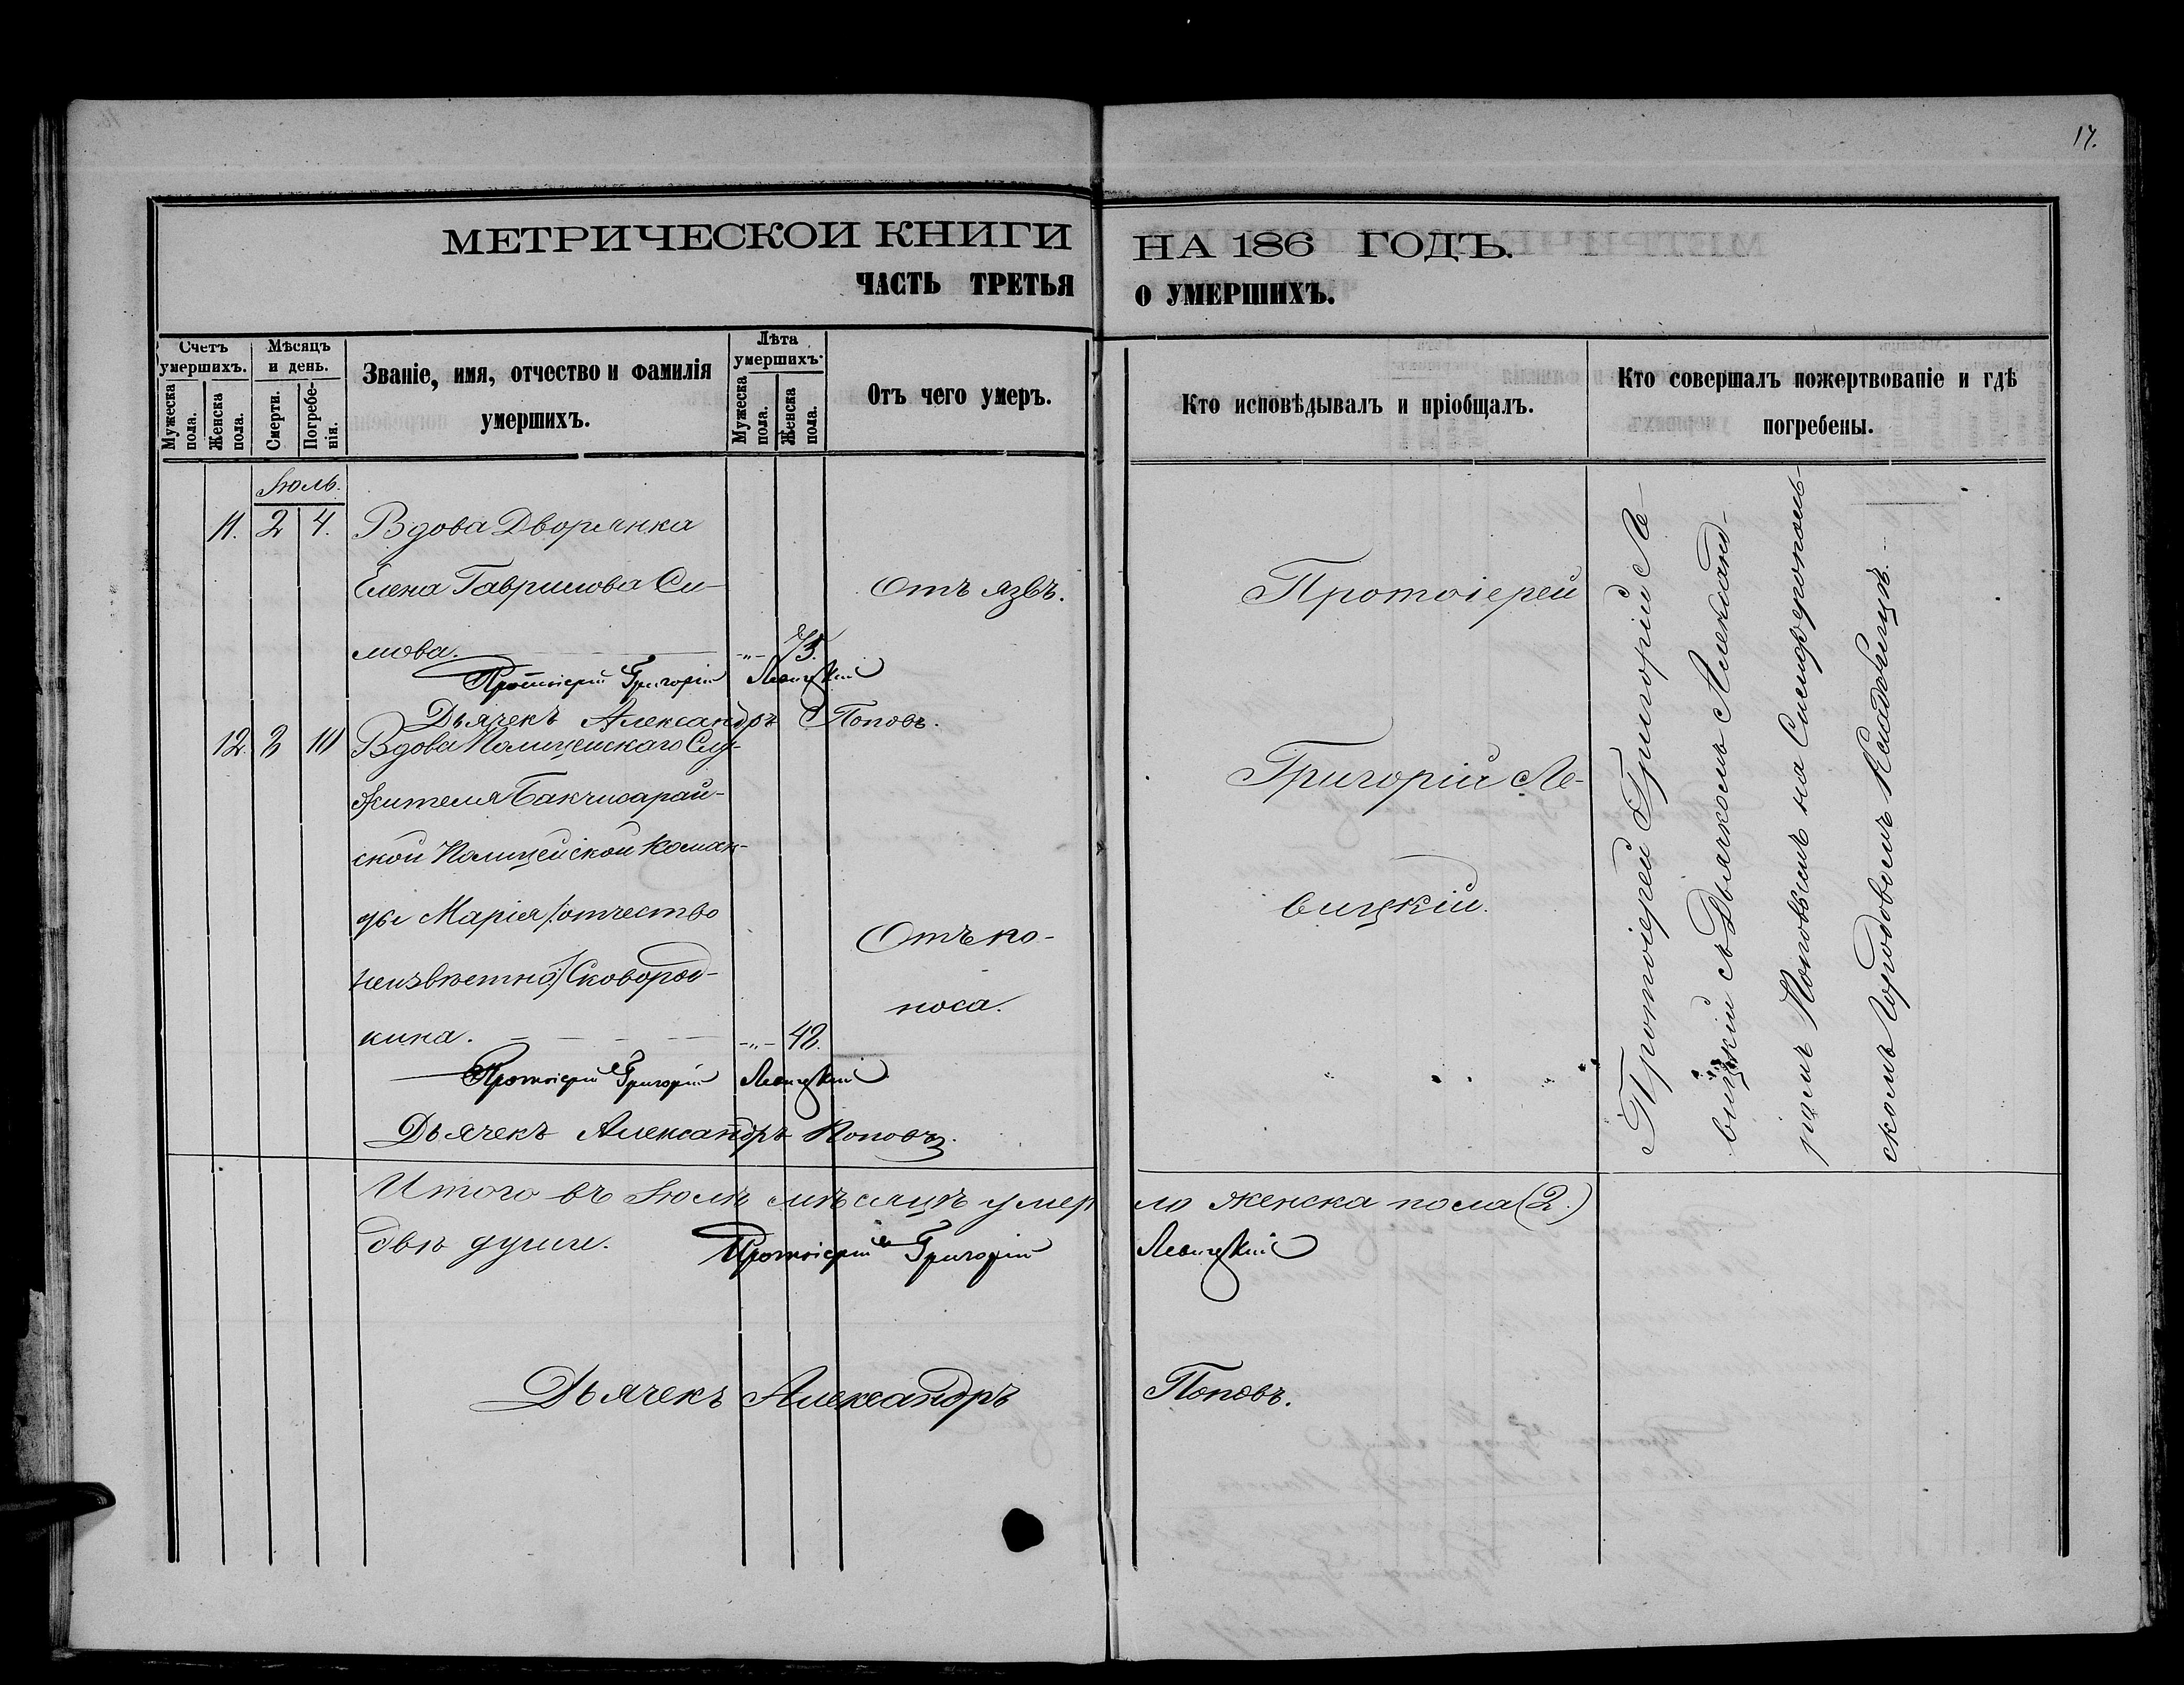 17.
МЕТРИЧЕСКОЙ КНИГИ НА 186 ГОДЪ.
ЧАСТЬ ТРЕТЬЯ О УМЕРШИХЪ.
Счетъ умершихъ.
Мужеска пола.
Женска пола.
Мѣсяцъ и день.
Смерти.
Погребенія.
Званіе, имя, отчество и фамилія
умершихъ.
Лѣта умершихъ.
Мужеска пола.
Женска пола.
Отъ чего умеръ.
Кто исповѣдывалъ и пріобщалъ.
Кто совершалъ пожертвованіе и гдѣ
погребены.
Іюль.
11. 2 4. Вдова Дворянка
Елена Гаврилова Си-
мова. -„- 75.
Отъ язвъ.
Протоіерей Григорій Левицкій
Дьячекъ Александръ Поповъ.
12. 8 10 Вдова Полицейскаго Слу-
жителя Бакчисарай-
ской Полицейской Коман-
ды Марія /:отчество
неизвѣстно:/ Сковород-
кина. -„- 48.
Отъ ко-
носа.
Протоіерей Григорій Левицкій
Дьячекъ Александръ Поповъ.
Протоіерей
Григорій Ле-
вицкій.
Протоіерей Григорій Ле-
вицкій съ Дьячкомъ Александ-
ромъ Поповымъ на Симферополь-
скомъ Городовомъ Кладбищѣ.
Итого въ Іюлѣ мѣсяцѣ умерло женска пола (2.)
двѣ души. Протоіерей Григорій Левицкій
Дьячекъ Александръ Поповъ.